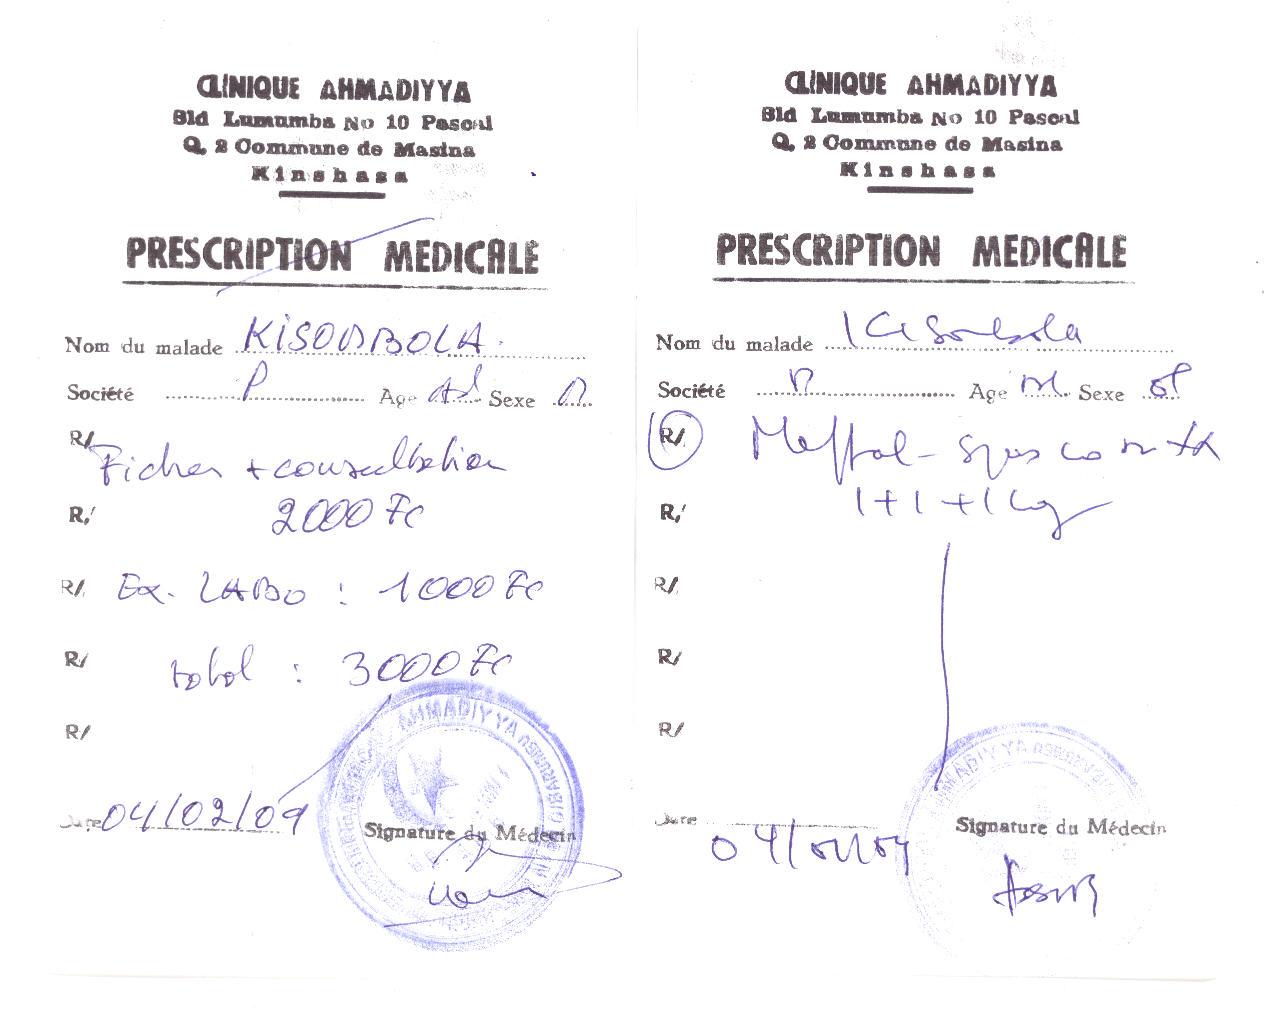 CLINIQUE AHMADIYYA
Bld Lumumba No 10 Pascal
Q. 2 Commune de Masina
Kinshasa
PRESCRIPTION MEDICALE
Nom du malade KISOMBOLA.
Société P Age Ad Sexe
R/ Fiches + consultation
R/ 2000 Fc
R/ Ex. LABO : 1000 Fc
R/ total : 3000 Fc
R/
Date 04/02/09
Signature du Médecin
AHMADIYYA
CLINIQUE AHMADIYYA
Bld Lumumba No 10 Pascal
Q. 2 Commune de Masina
Kinshasa
PRESCRIPTION MEDICALE
Nom du malade Kisombola
Société Age Sexe
R/ Meftal-spas
R/ 1+1+1
R/
R/
R/
Date
Signature du Médecin
AHMADIYYA